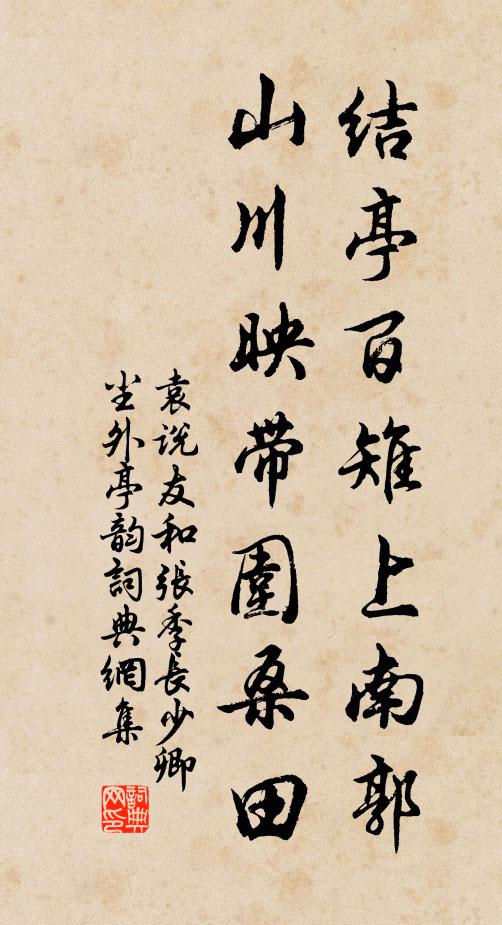 结亭百雉上南郭
山川映带圍桑田
袁说友和張季長少卿
尘外亭韵詞典網集
詞典网印